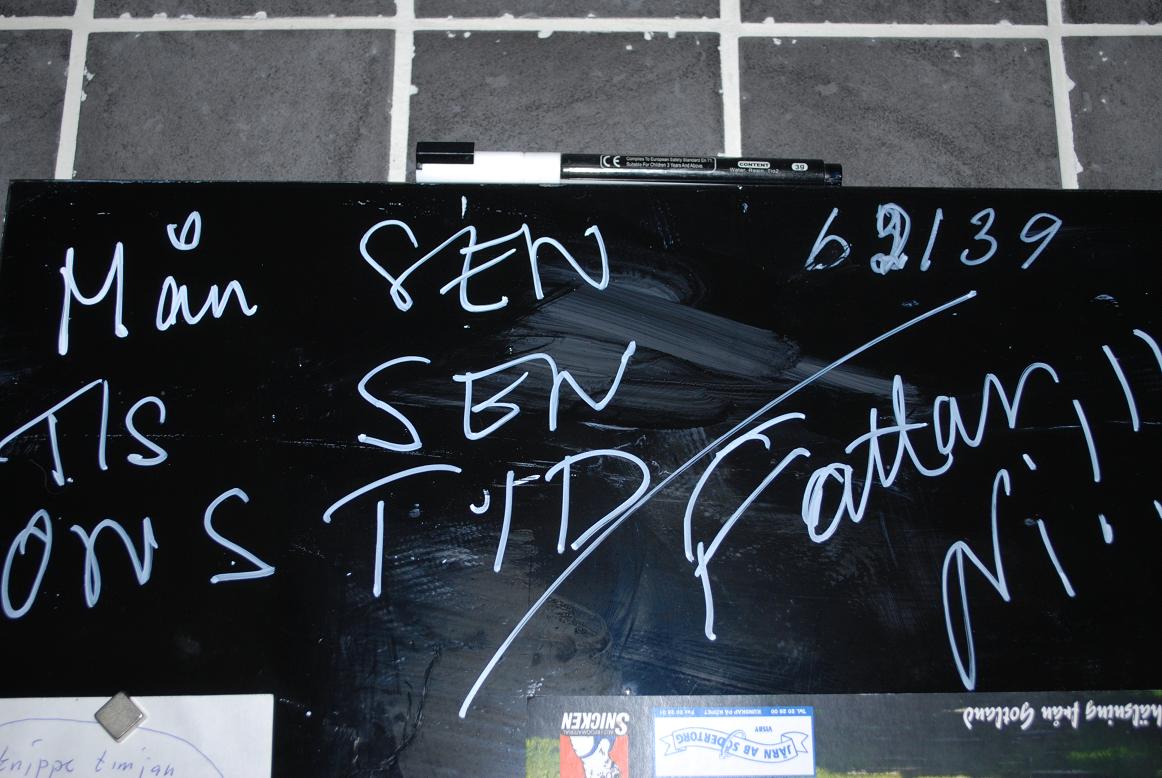 Complies To European Safety Standard En 71.
Suitable For Children 3 Years And Above.
CE
CONTENT
Water, Resin, Tio2
39
Mån SEN 62139
TIS SEN
ONS TID
Fattar
Ni!!
knippe timjan
SNICKEN
JÄRN AB SÖDERTORG
VISBY
KUNSKAP PÅ KÖPET
hälsning från Gotland